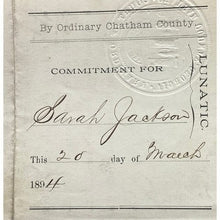 By Ordinary Chatham County.
COMMITMENT FOR
LUNATIC.
Sarah Jackson
This 20 day of March
1894